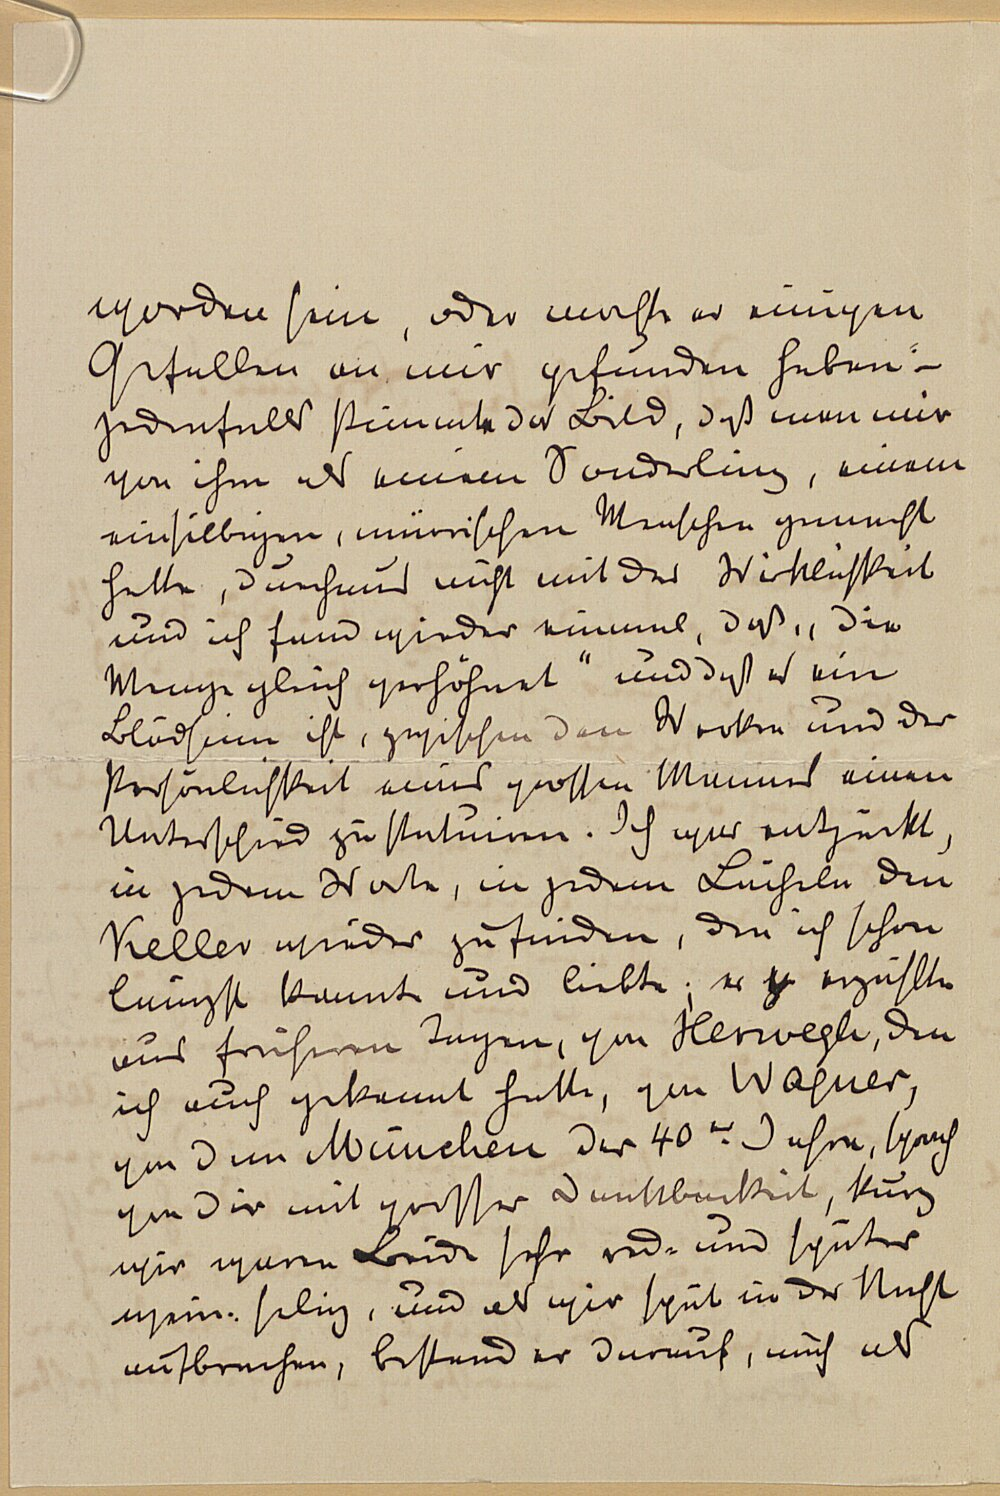 worden sein, oder mochte er einigen
Gefallen an mir gefunden haben –
jedenfalls stimmte das Bild, daß man mir
von ihm als einem Sonderling, einem
einsilbigen, mürrischen Menschen gemacht
hatte, durchaus nicht mit der Wirklichkeit
und ich fand wieder einmal, daß „die
Menge gleich verhöhnet“ und daß es ein
Blödsinn ist, zwischen den Werken und der
Persönlichkeit eines grossen Mannes einen
Unterschied zu statuiren. Ich war entzückt,
in jedem Worte, in jedem Lächeln den
Keller wieder zu finden, den ich schon
längst kannte und liebte; er erzählte
aus früheren Tagen, von Herwegh, den
ich auch gekannt hatte, von Wagner,
von dem München der 40er Jahre, sprach
von Dir mit grosser Dankbarkeit, kurz
wir waren Beide sehr red- und später
wein-selig, und als wir spät in der Nacht
aufbrachen, bestand er darauf, mich als